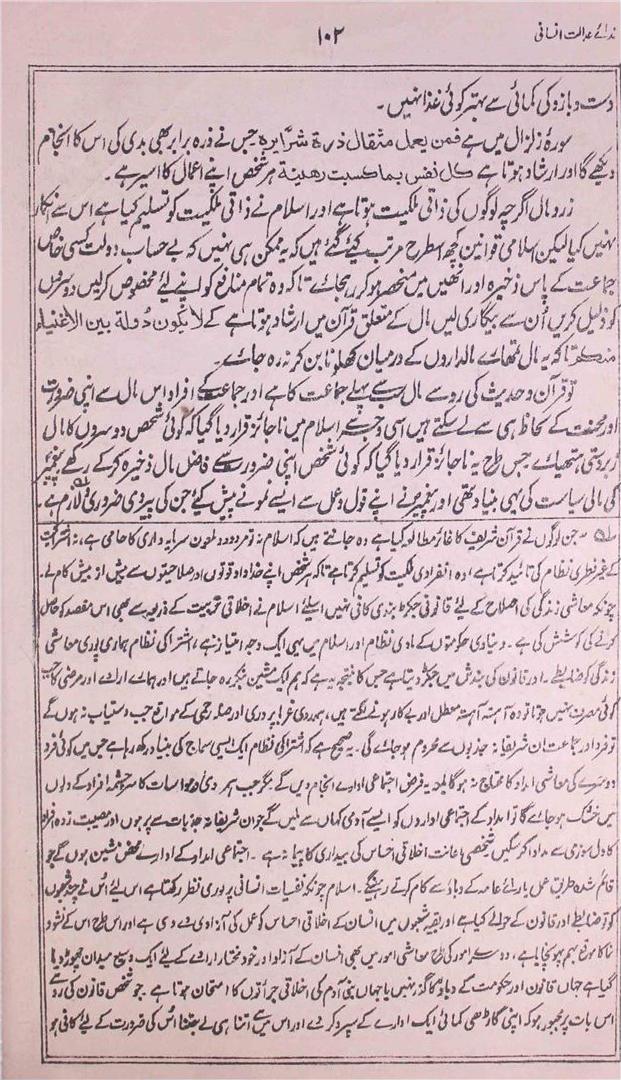 ندائے عدالت انسانی
۱۰۲
دست و بازو کی کمائی سے بہتر کوئی غذا نہیں۔
سورۂ زلزال میں ہے فمن يعمل مثقال ذرة شرا يره جس نے ذرہ برابر بھی بدی کی اس کا انجام
دیکھے گا اور ارشاد ہوتا ہے كل نفس بما كسبت رهينة ہر شخص اپنے اعمال کا اسیر ہے۔
زر و مال اگرچہ لوگوں کی ذاتی ملکیت ہوتا ہے اور اسلام نے ذاتی ملکیت کو تسلیم کیا ہے اس سے انکار
نہیں کیا لیکن اسلامی قوانین کچھ اسطرح مرتب کئے گئے ہیں کہ یہ ممکن ہی نہیں کہ بے حساب دولت کسی خاص
جماعت کے پاس ذخیرہ اور انھیں میں منحصر ہوکر رہجائے تاکہ وہ تمام منافع کو اپنے لئے مخصوص کرلیں دوسروں
کو ذلیل کریں اُن سے بیگاری لیں مال کے متعلق قرآن میں ارشاد ہوتا ہے کے لا يكون دولة بين الاغنياء
منكم تاکہ یہ مال تمھارے مالداروں کے درمیان کھلونا بن کر نہ رہ جائے۔
تو قرآن و حدیث کی رو سے مال سب سے پہلے جماعت کا ہے اور جماعت کے افراد اس مال سے اپنی ضرورت
اور محنت کے لحاظ ہی سے لے سکتے ہیں اسی وجہ سے اسلام میں ناجائز قرار دیا گیا کہ کوئی شخص دوسروں کا مال
زبردستی ہتھیائے جس طرح یہ ناجائز قرار دیا گیا کہ کوئی شخص اپنی ضرورت سے فاضل مال ذخیرہ کر کے رکھے پیغمبر
کی مالی سیاست کی یہی بنیاد تھی اور پیغمبر نے اپنے قول و عمل سے ایسے نمونے پیش کئے جن کی پیروی ضروری و لازم ہے۔
۔ جن لوگوں نے قرآن شریف کا غائر مطالعہ کیا ہے وہ جانتے ہیں کہ اسلام نہ تو مردود و ملعون سرمایہ داری کا حامی ہے، نہ اشتراکیت
کے غیر فطری نظام کی تائید کرتا ہے، وہ انفرادی ملکیت کو تسلیم کرتا ہے تاکہ ہر شخص اپنے خداداد قوتوں اور صلاحیتوں سے بیش از بیش کام لے،
چونکہ معاشی زندگی کی اصلاح کے لیے قانونی جکڑ بندی کافی نہیں اسلئے اسلام نے اخلاقی تربیت کے ذریعہ سے بھی اس مقصد کو حاصل
کرنے کی کوشش کی ہے۔ دنیاوی حکومتوں کے مادی نظام اور اسلام میں یہی ایک وجہ امتیاز ہے، اشتراکی نظام ہماری پوری معاشی
زندگی کو ضابطے اور قانون کی بندش میں جکڑ دیتا ہے جس کا نتیجہ یہ ہے کہ ہم ایک مشین بنکر رہ جاتے ہیں اور ہمارے ارادے اور مرضی کا جب
کوئی مصرف نہیں ہوتا تو وہ آہستہ آہستہ معطل اور بے کار ہونے لگتے ہیں، ہمدردی غربا پروری اور صلہ رحمی کے مواقع جب دستیاب نہ ہوں گے
تو فرد اور جماعت ان شریفانہ جذبوں سے محروم ہوجائے گی۔ یہ صحیح ہے کہ اشتراکی نظام ایک ایسی سماج کی بنیاد رکھ رہا ہے جس میں کوئی فرد
دوسرے کی معاشی امداد کا محتاج نہ ہوگا بلکہ یہ فرض اجتماعی ادارے انجام دیں گے۔ مگر جب ہمدردی اور مواسات کا سرچشمہ افراد کے دلوں
میں خشک ہوجائے گا تو امداد کے اجتماعی اداروں کو ایسے آدمی کہاں سے ملیں گے جو ان شریفانہ جذبات سے پر ہوں اور مصیبت زدہ افراد
کا دل سوزی سے مداوا کرسکیں شخصی اعانت اخلاقی احساس کی بیداری کا پیمانہ ہے۔ اجتماعی امداد کے ادارے محض مشین ہوں گے جو
قائم شدہ طریق عمل یا رائے عامہ کے دباؤ سے کام کرتے رہینگے۔ اسلام چونکہ نفسیات انسانی پر پوری نظر رکھتا ہے اس لیے اُس نے چند شعبوں
کو تو ضابطے اور قانون کے حوالے کیا ہے اور بقیہ شعبوں میں انسان کے اخلاقی احساس کو عمل کی آزادی دے دی ہے اور اس طرح اس کے نشو و
نما کا موقع بہم پہونچایا ہے، دوسرے امور کی طرح معاشی امور میں بھی انسان کے آزاد اور خود مختار ارادے کے لئے ایک وسیع میدان چھوڑ دیا
گیا ہے جہاں قانون اور حکومت کے دباؤ کا گزر نہیں یا جہاں بنی آدم کی اخلاقی جرأتوں کا امتحان ہوتا ہے۔ جو شخص قانون کی رو سے
اس بات پر مجبور ہو کہ اپنی گاڑھی کمائی ایک ادارے کے سپرد کر دے اور اس میں سے اتنا ہی لے جتنا اُس کی ضرورت کے لئے کافی ہو